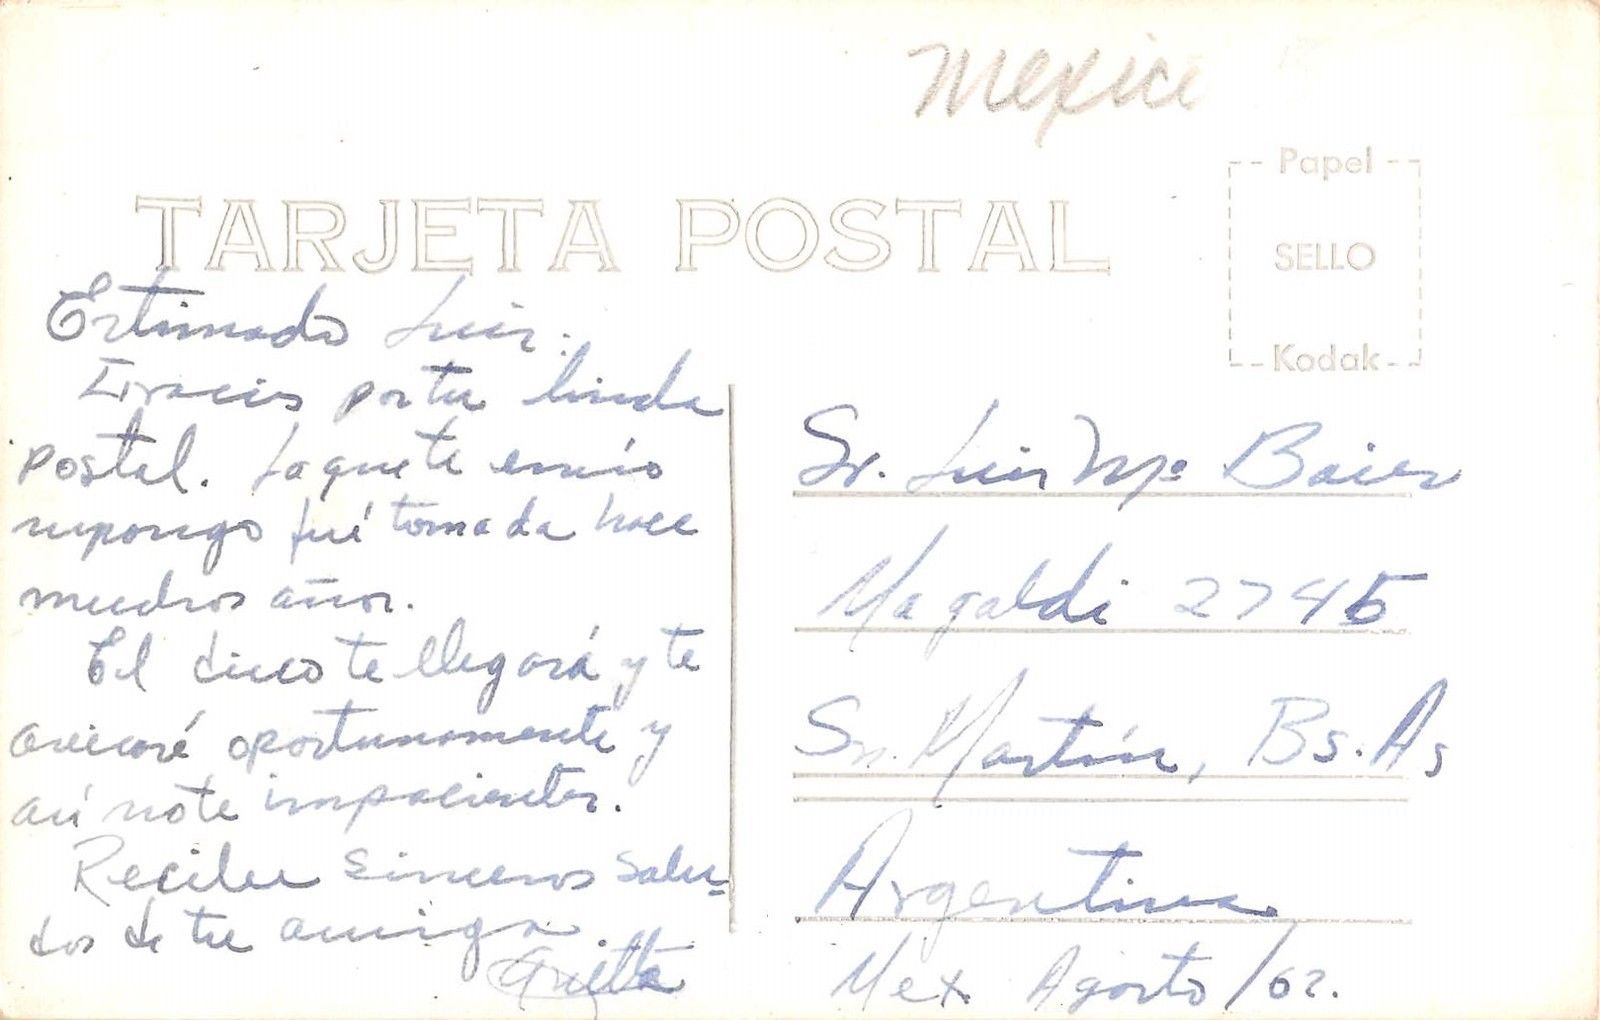 Mexico
Papel
SELLO
Kodak
TARJETA POSTAL
Estimado Luis:
Gracias por tu linda
postal. La que te envío
supongo fué tomada hace
muchos años.
El disco te llegará y te
avisaré oportunamente y
así no te impacientes.
Recibe sinceros salu-
dos de tu amiga
Sr. Luis Mª Baier
Magaldi 2745
Sn. Martín, Bs. As
Argentina
Mex. Agosto/62.